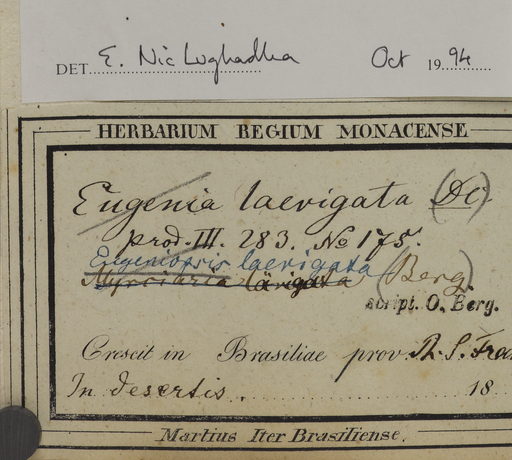 DET. E. Nic Lughadha Oct 19 94
HERBARIUM REGIUM MONACENSE
Eugenia laevigata (DC)
prod. III. 283. No 175.
Eugeniopsis laevigata (Berg)
Myrciaria
script. O. Berg.
Crescit in Brasiliae prov.
In desertis. 18
Martius Iter Brasiliense.